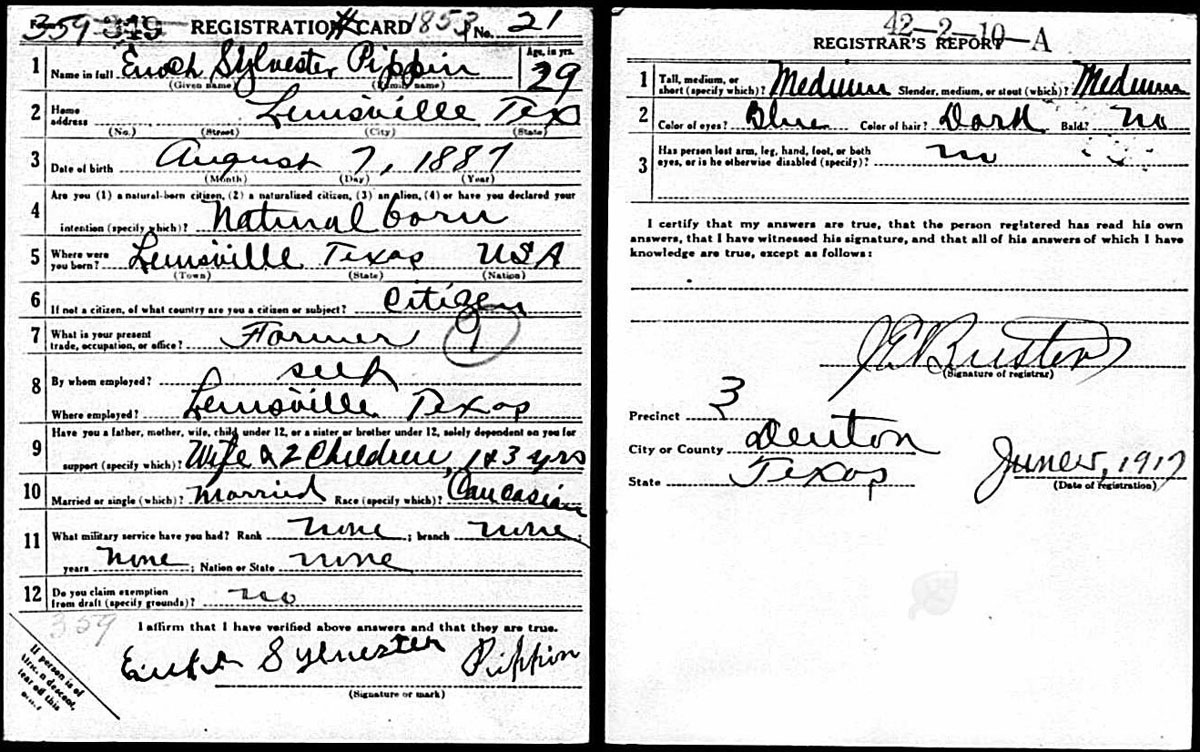 359 349 REGISTRATION CARD 1853 No. 21
1 Name in full Enoch Sylvester Pippin Age, in yrs. 29
(Given name) (Family name)
2 Home address Lewisville Tex
(No.) (Street) (City) (State)
3 Date of birth August 7, 1887
(Month) (Day) (Year)
Are you (1) a natural-born citizen, (2) a naturalized citizen, (3) an alien, (4) or have you declared your
4 intention (specify which)? Natural born
5 Where were you born? Lewisville Texas USA
(Town) (State) (Nation)
6 If not a citizen, of what country are you a citizen or subject? Citizen
7 What is your present trade, occupation, or office? Farmer 9
8 By whom employed? self
Where employed? Lewisville Texas
9 Have you a father, mother, wife, child under 12, or a sister or brother under 12, solely dependent on you for
support (specify which)? Wife & 2 Children, 1 & 3 yrs
10 Married or single (which)? Married Race (specify which)? Caucasian
11 What military service have you had? Rank none ; branch none ;
years None ; Nation or State none
12 Do you claim exemption from draft (specify grounds)? no
359
I affirm that I have verified above answers and that they are true.
Sylvester Pippin
(Signature or mark)
If person is of
tear off this
42-2-10-A
REGISTRAR'S REPORT
1 Tall, medium, or short (specify which)? Medium Slender, medium, or stout (which)? Medium
2 Color of eyes? Blue Color of hair? Dark Bald? No
3 Has person lost arm, leg, hand, foot, or both eyes, or is he otherwise disabled (specify)? no
I certify that my answers are true, that the person registered has read his own
answers, that I have witnessed his signature, and that all of his answers of which I have
knowledge are true, except as follows:
(Signature of registrar)
Precinct 3
City or County Denton
State Texas
June 5, 1917
(Date of registration)